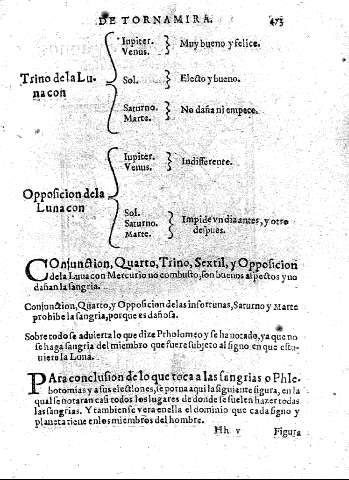 DE TORNAMIRA. 473
Iupiter.
Venus.
Muy bueno y felice.
Trino de la Lu-
na con
Sol.
Electo y bueno.
Saturno.
Marte.
No daña ni empece.
Iupiter.
Venus.
Indifferente.
Opposicion dela
Luna con
Sol.
Saturno.
Marte.
Impide vn dia antes, y otro
despues.
COnjunction, Quarto, Trino, Sextil, y Opposicion
de la Luna con Mercurio no combusto, son buenos aspectos y no
dañan la sangria.
Conjunction, Quarto, y Opposicion de las infortunas, Saturno y Marte
prohibe la sangria, porque es dañosa.
Sobre todo se aduierta lo que dize Ptholomeo y se ha notado, ya que no
se haga sangria del miembro que fuere subjeto al signo en que estu-
uiere la Luna.
PAra conclusion de lo que toca a las sangrias o Phle-
bothomias y a sus electiones, se porna aqui la siguiente figura, en la
qual se notaran casi todos los lugares de donde se suelen hazer todas
las sangrias. Y tambien se vera en ella el dominio que cada signo y
planeta tiene en los miembros del hombre.
Hh v Figura